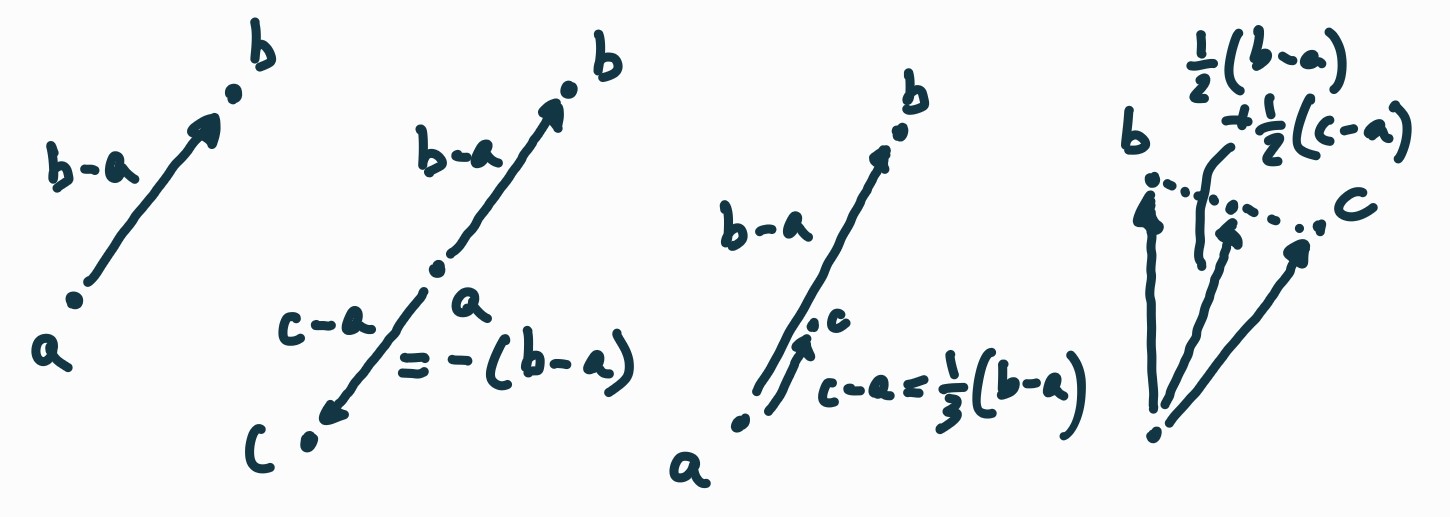 b
b-a
a
b
b-a
a
c-a
= -(b-a)
c
b
b-a
c
c-a = 1/3(b-a)
a
1/2(b-a)
+1/2(c-a)
b
c